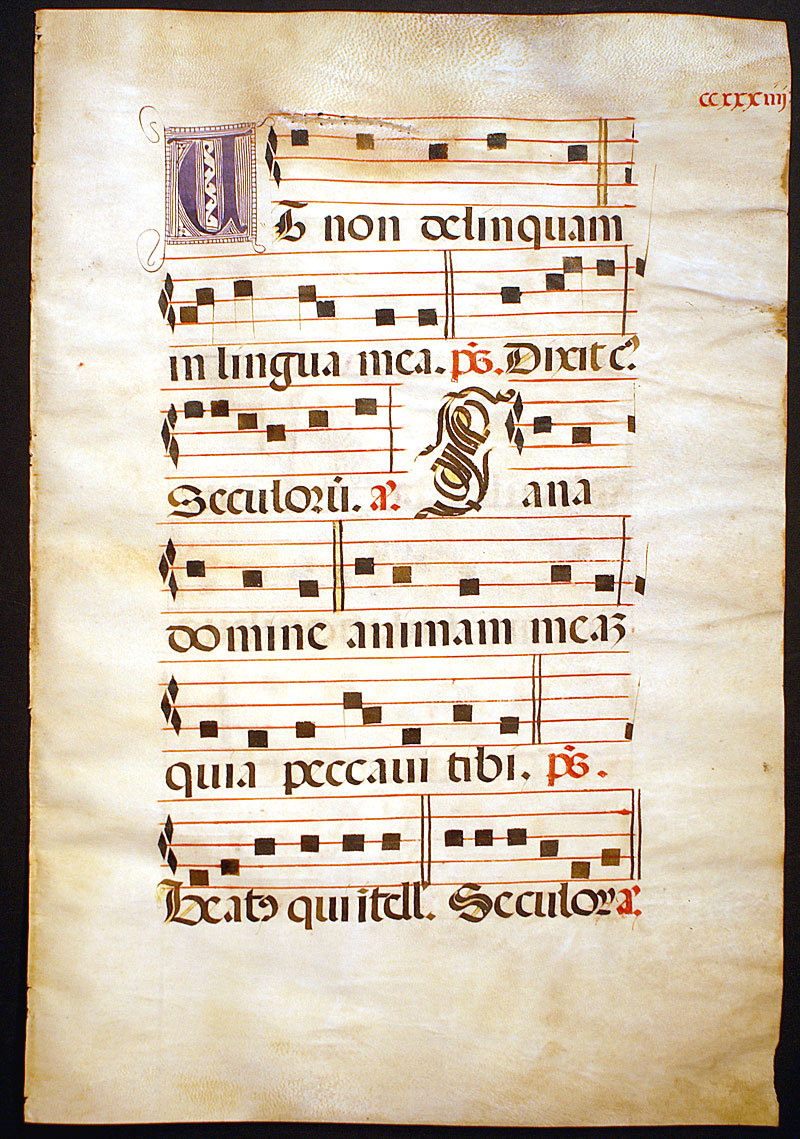 ccxxxiiij
Ut non delinquam
in lingua mea. ps. Dixit c.
Seculorū. a. Sana
domine animam meaz
quia peccaui tibi. ps.
Beatꝰ qui itell. Seculor a.